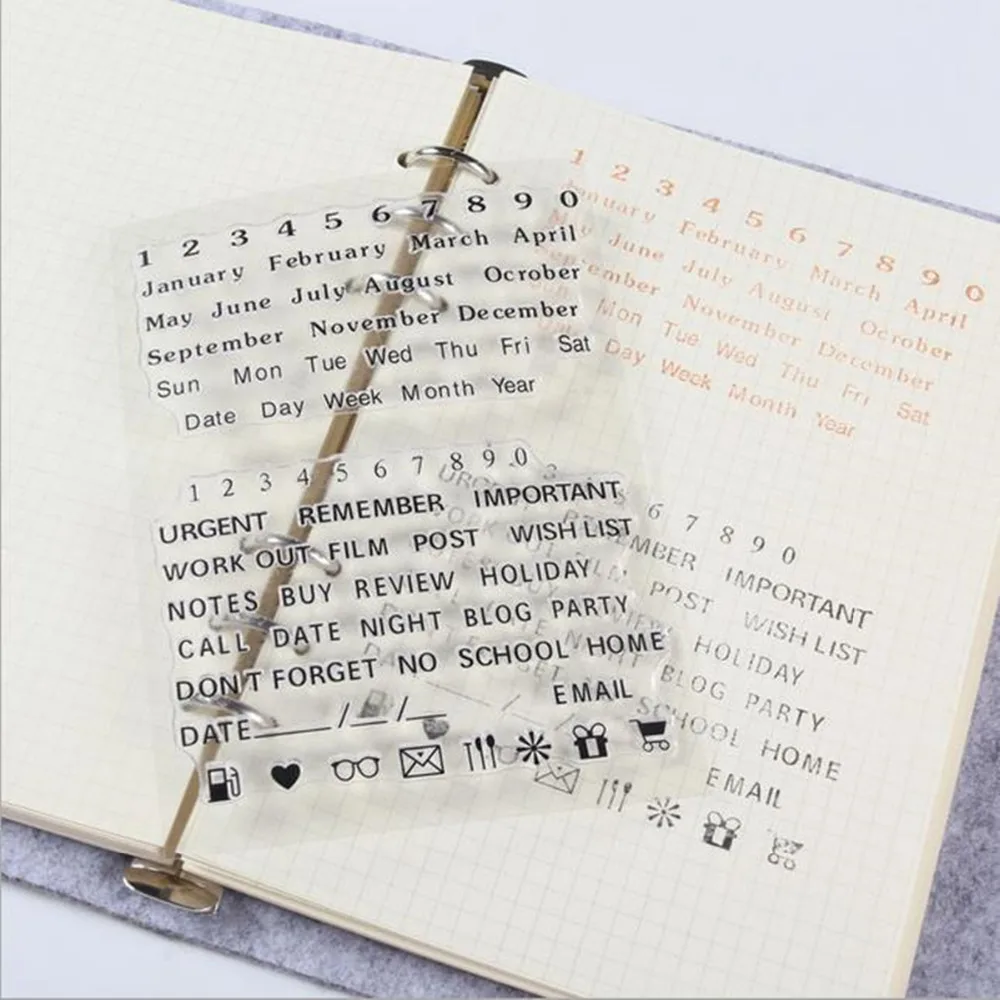 1 2 3 4 5 6 7 8 9 0
January February March April
May June July August Ocrober
September November December
Sun Mon Tue Wed Thu Fri Sat
Date Day Week Month Year
1 2 3 4 5 6 7 8 9 0
URGENT REMEMBER IMPORTANT
WORK OUT FILM POST WISH LIST
NOTES BUY REVIEW HOLIDAY
CALL DATE NIGHT BLOG PARTY
DON'T FORGET NO SCHOOL HOME
DATE____/__/__ EMAIL
1 2 3 4 5 6 7 8 9 0
January February March April
June July August Ocrober
November December
Mon Tue Wed Thu Fri Sat
Day Week Month Year
6 7 8 9 0
IMPORTANT
POST WISH LIST
HOLIDAY
BLOG PARTY
SCHOOL HOME
EMAIL